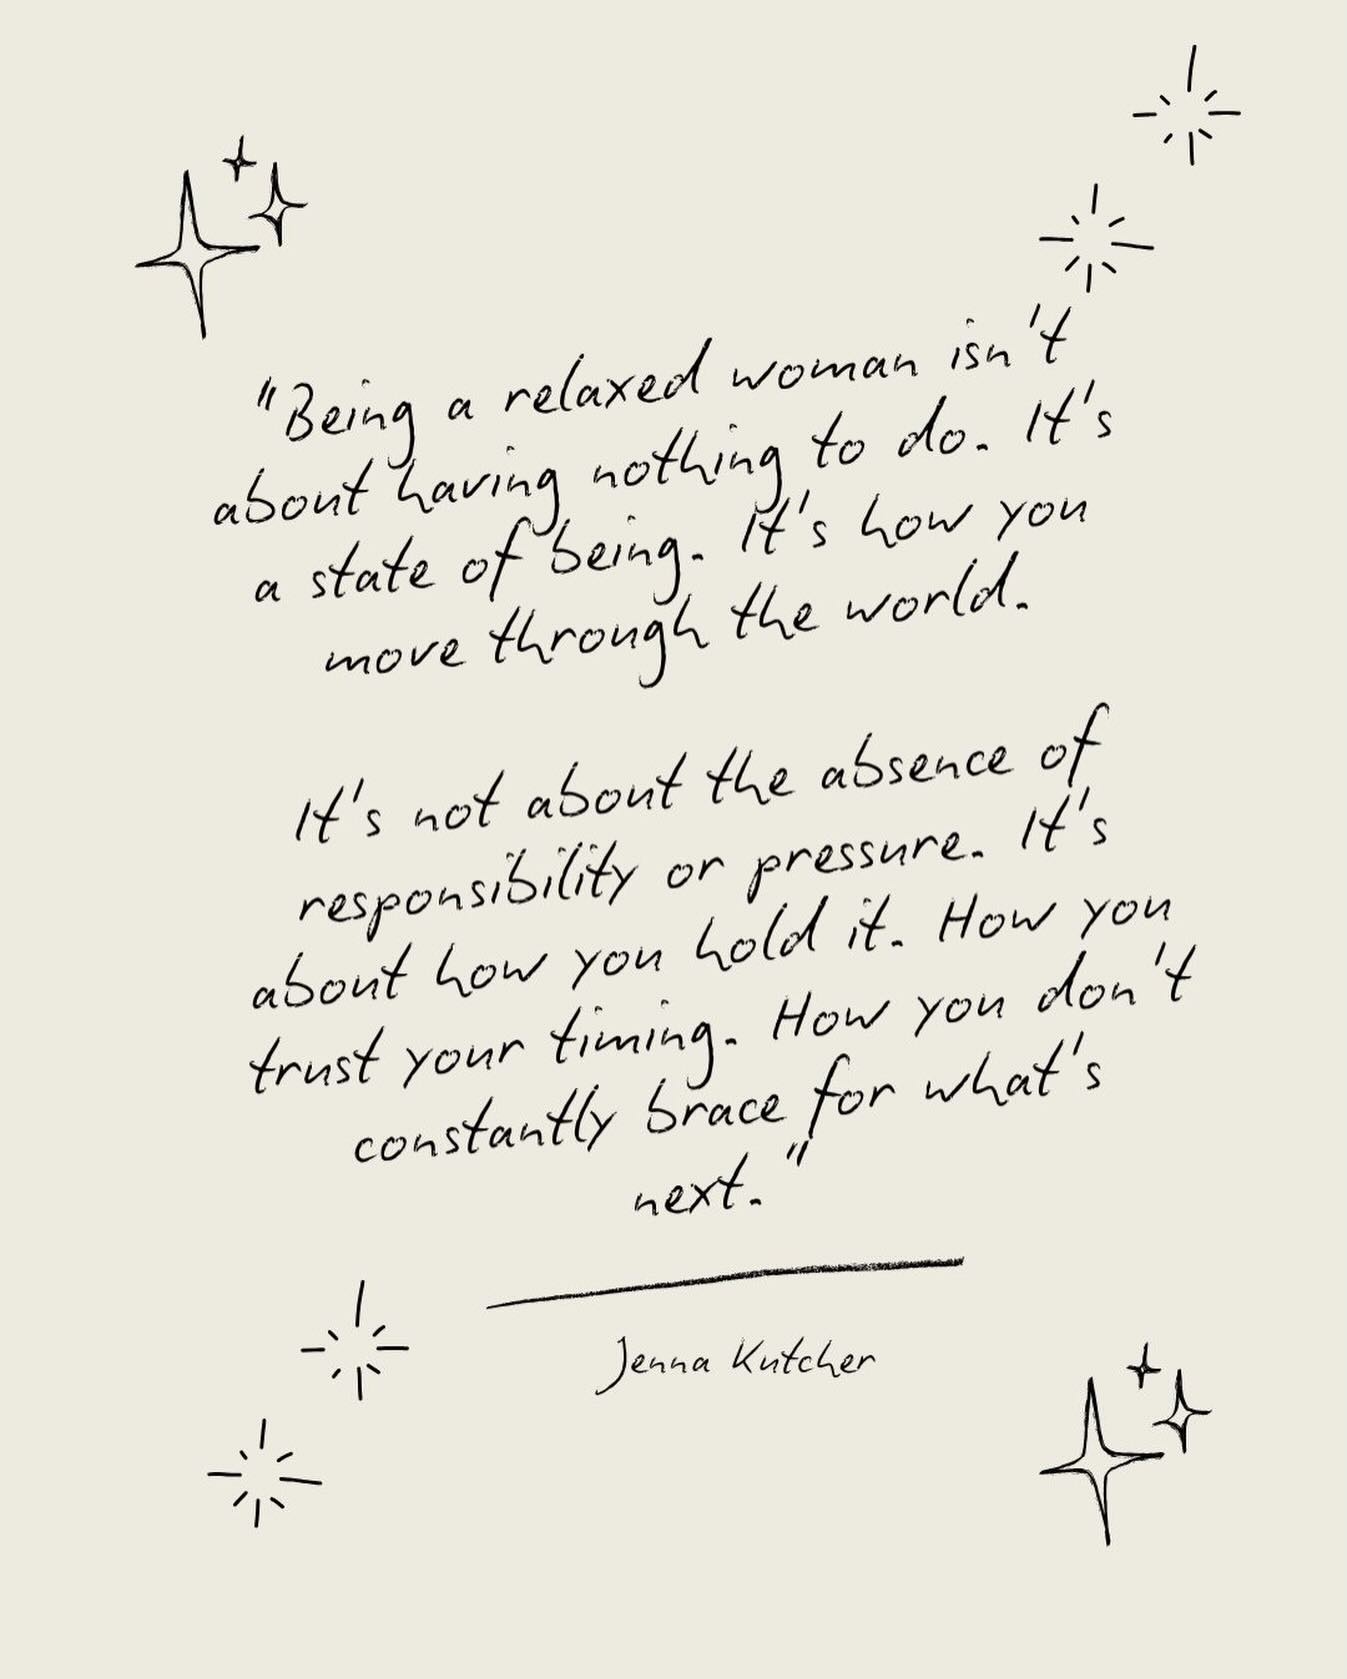 "Being a relaxed woman isn't
about having nothing to do. It's
a state of being. It's how you
move through the world.
It's not about the absence of
responsibility or pressure. It's
about how you hold it. How you
trust your timing. How you don't
constantly brace for what's
next."
Jenna Kutcher